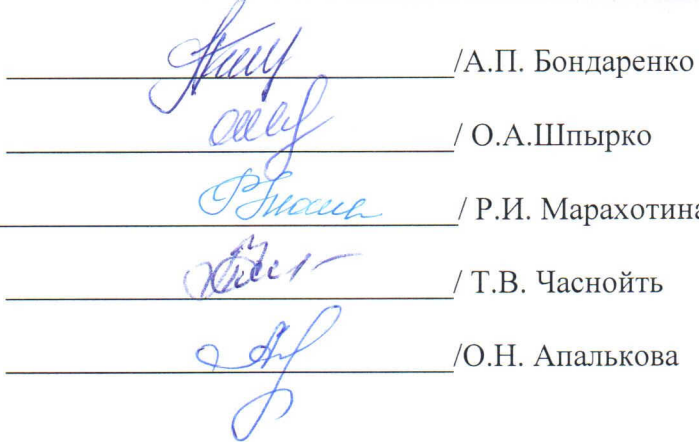 /А.П. Бондаренко
/ О.А.Шпырко
/ Р.И. Марахотина
/ Т.В. Часнойть
/О.Н. Апалькова